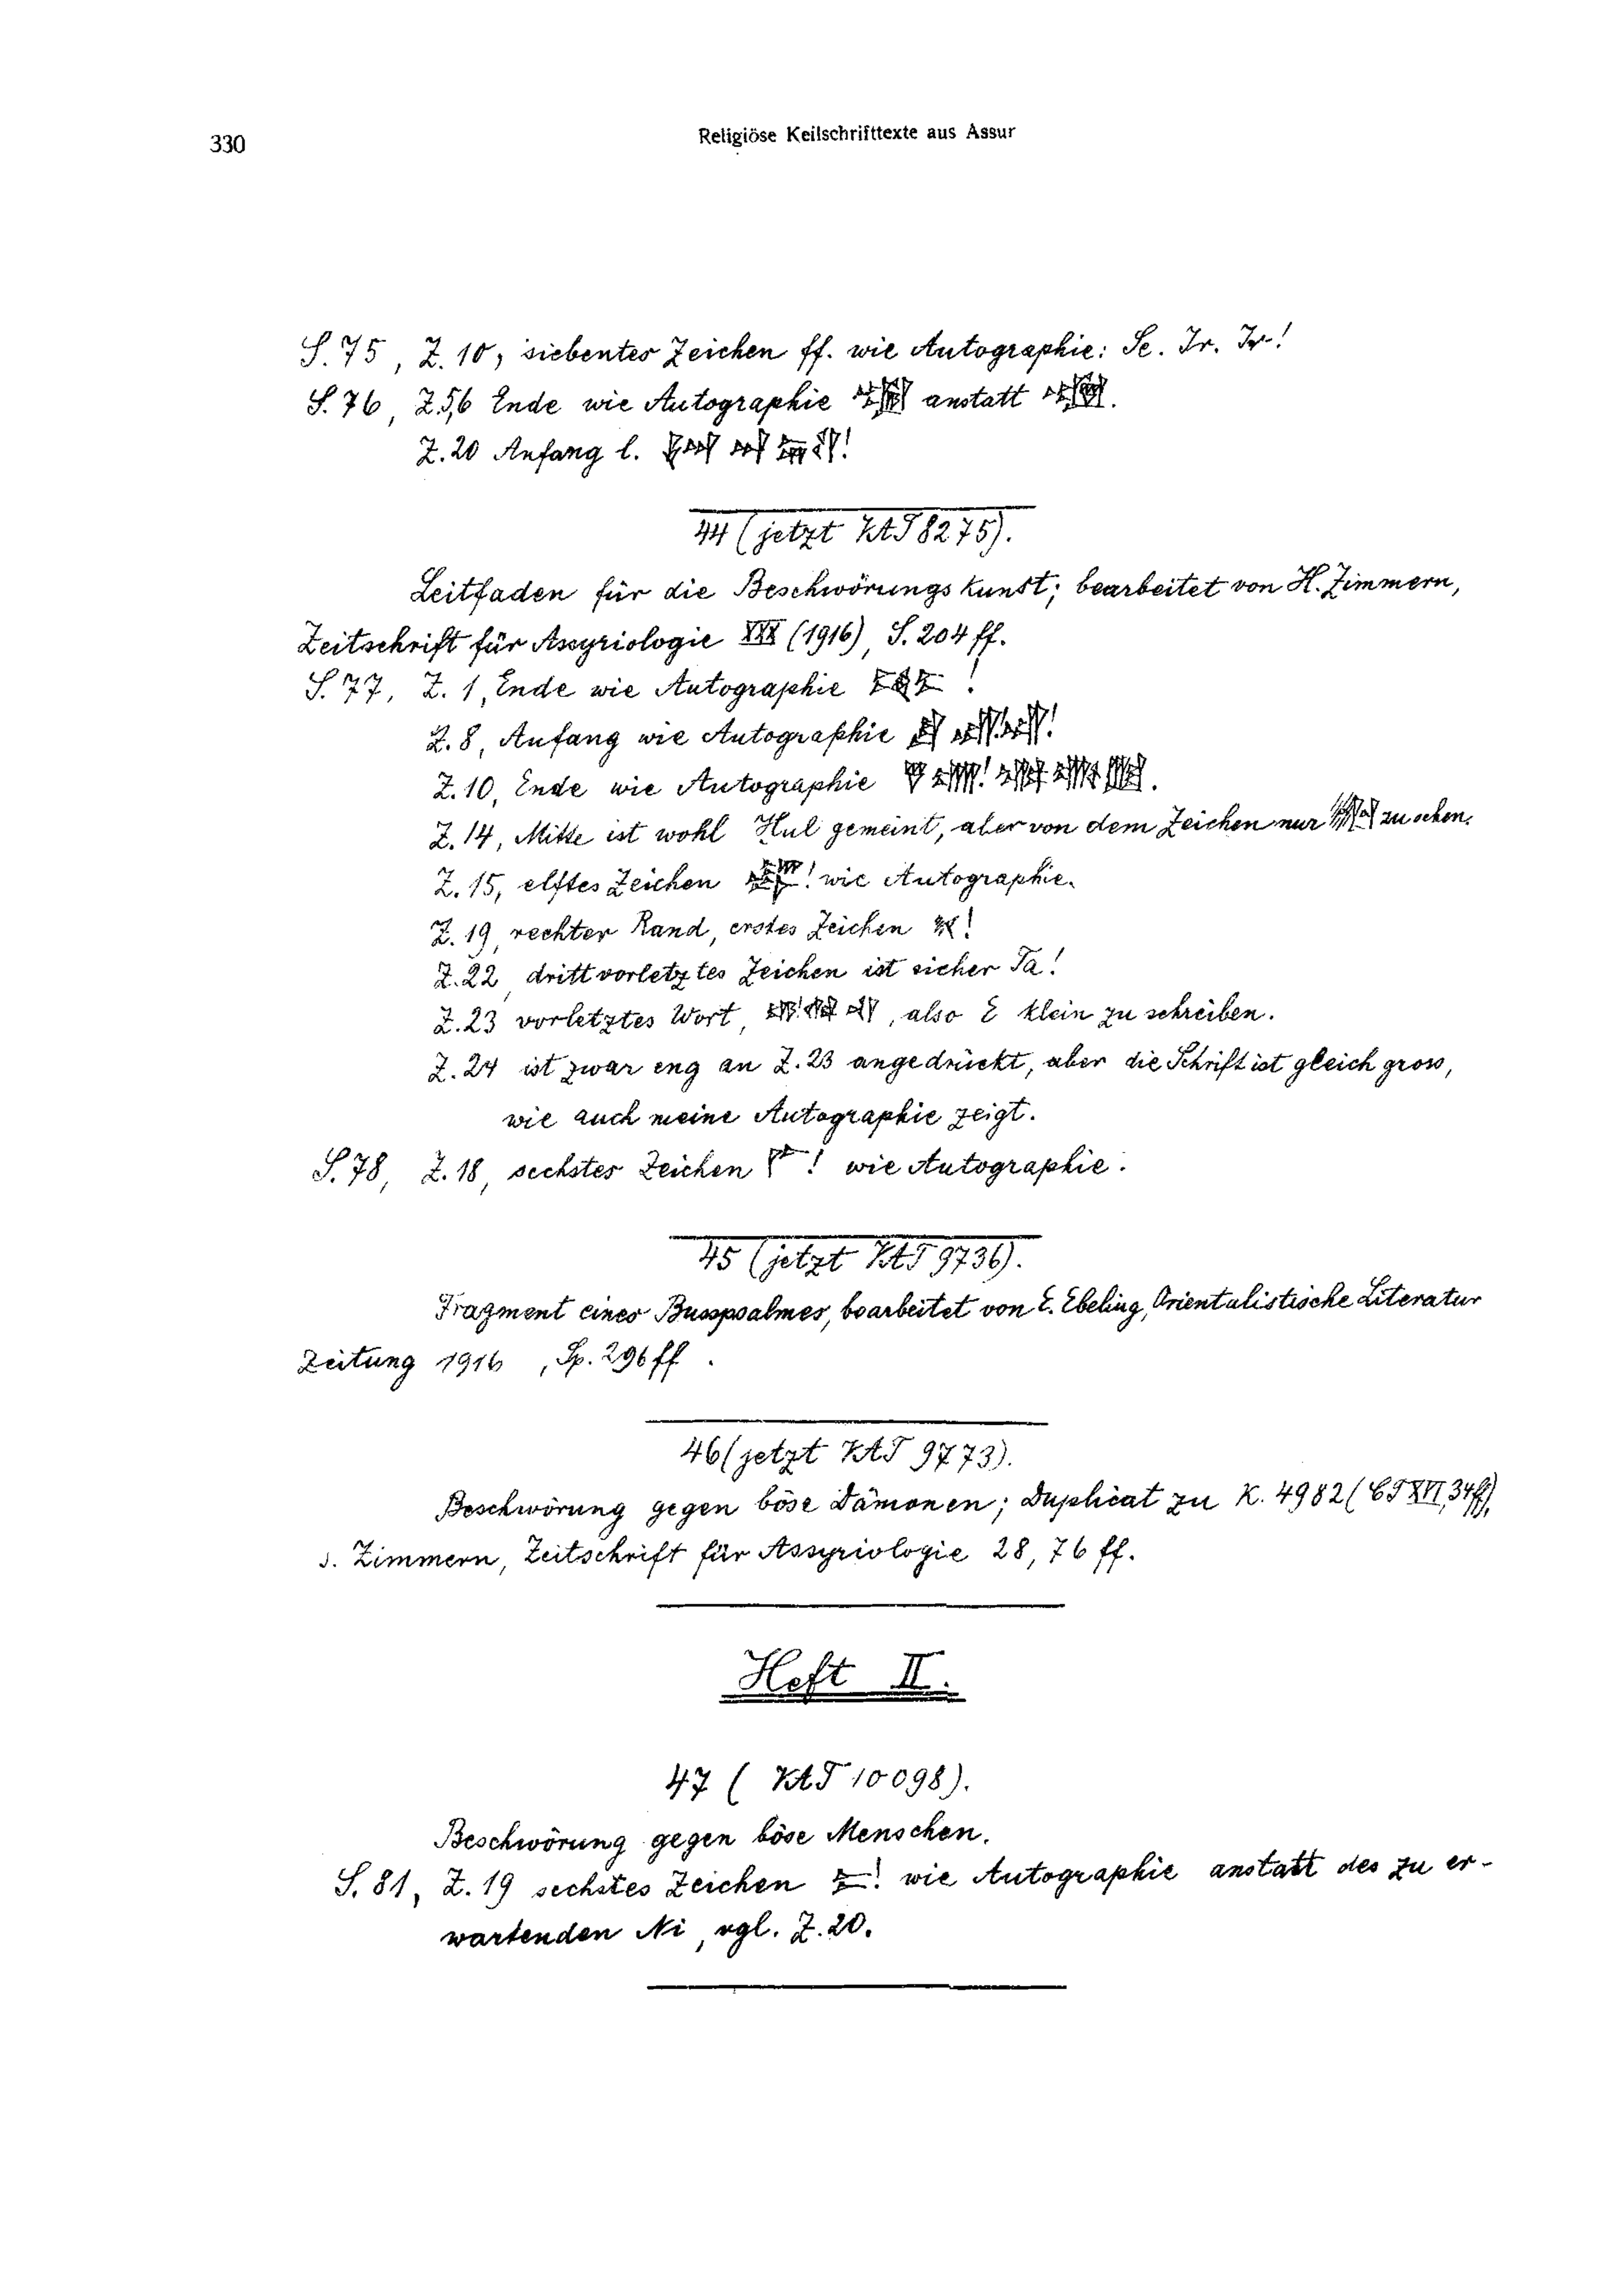 330
Religiöse Keilschrifttexte aus Assur
S. 75, Z. 10, siebentes Zeichen ff. wie Autographie: Se. Ir. Ir!
S. 76, Z. 5,6 Ende wie Autographie anstatt .
Z. 20 Anfang l. !
44 (jetzt VAT 8275).
Leitfaden für die Beschwörungskunst; bearbeitet von H. Zimmern,
Zeitschrift für Assyriologie XXX (1916), S. 204 ff.
S. 77, Z. 1, Ende wie Autographie !
Z. 8, Anfang wie Autographie !
Z. 10, Ende wie Autographie .
Z. 14, Mitte ist wohl Hul gemeint, aber von dem Zeichen nur zu sehen.
Z. 15, elftes Zeichen ! wie Autographie.
Z. 19, rechter Rand, erstes Zeichen !
Z. 22, drittvorletztes Zeichen ist sicher Ta!
Z. 23 vorletztes Wort, , also E klein zu schreiben.
Z. 24 ist zwar eng an Z. 23 angedrückt, aber die Schrift ist gleich gross,
wie auch meine Autographie zeigt.
S. 78, Z. 18, sechstes Zeichen ! wie Autographie.
45 (jetzt VAT 9736).
Fragment eines Busspsalmes, bearbeitet von E. Ebeling, Orientalistische Literatur
Zeitung 1916, Sp. 296 ff.
46 (jetzt VAT 9773).
Beschwörung gegen böse Dämonen; Duplicat zu K. 4982 (CT XVI, 34ff),
s. Zimmern, Zeitschrift für Assyriologie 28, 76 ff.
Heft II.
47 (VAT 10098).
Beschwörung gegen böse Menschen.
S. 81, Z. 19 sechstes Zeichen ! wie Autographie anstatt des zu er-
wartenden Ni, vgl. Z. 20.